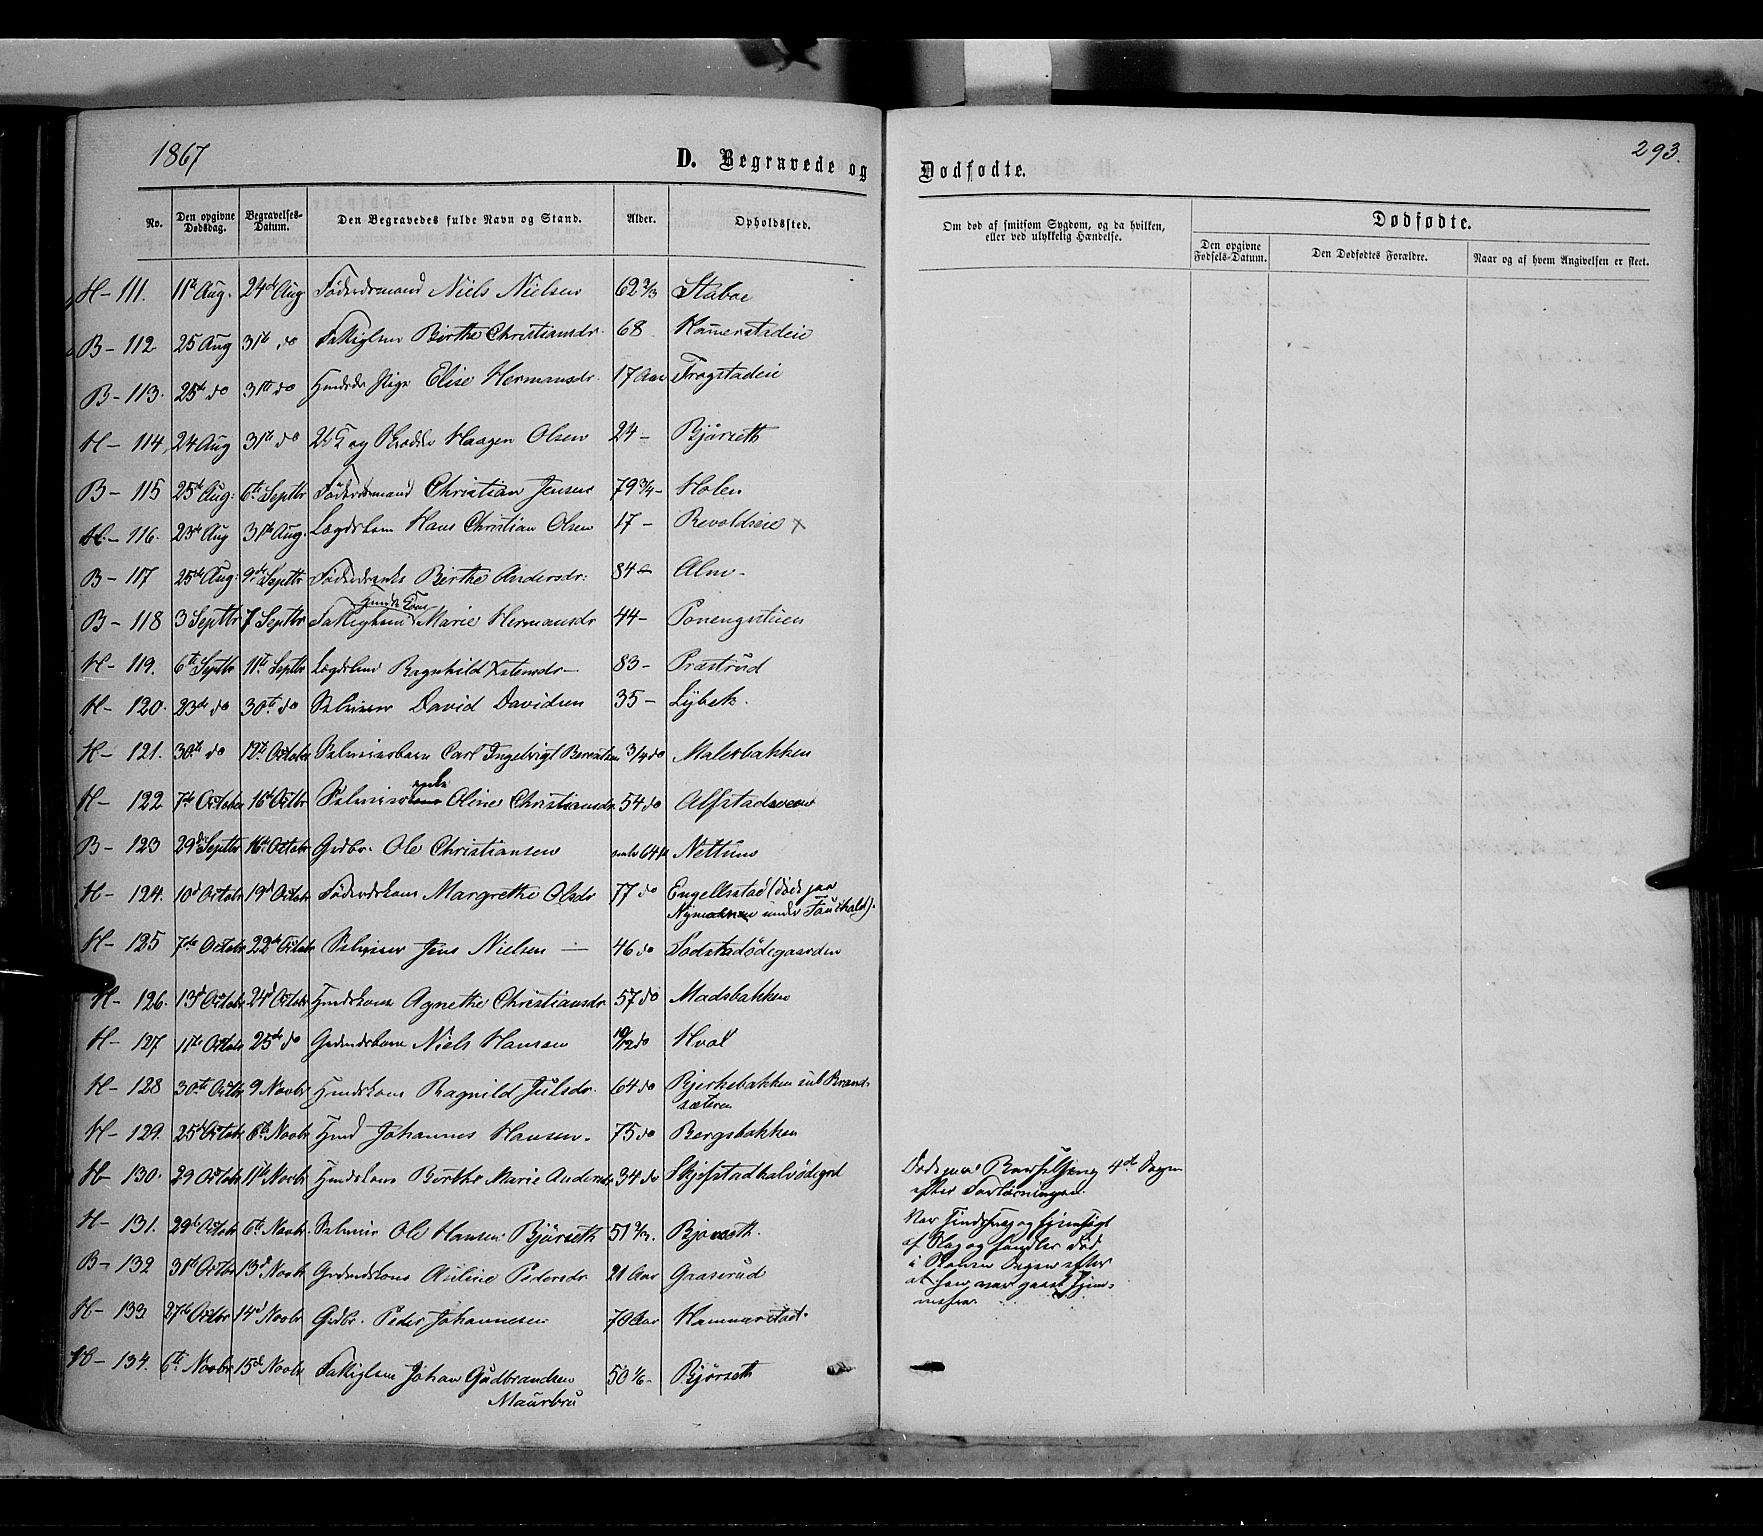 1867
D. Begravede og
Dødfødte.
293.
No.
Den opgivne Dødsdag.
Begravelses-Datum.
Den Begravedes fulde Navn og Stand.
Alder.
Opholdssted.
Om død af smitsom Sygdom, og da hvilken, eller ved ulykkelig Hændelse.
Dødfødte.
Den opgivne Fødsels-Datum.
Den Dødfødtes Forældre.
Naar og af hvem Angivelsen er skeet.
H - 111. 11te Aug. 24de Aug Föderdsmand Niels Nielsen 62 2/3 Staboe
B - 112 25 Aug 31te do Fattiglem Birthe Christiansdr. 68 Hamerstadeie
B - 113. 25de do 31te do Elise Hermansdr. 17 Aar Frogstadeie
H - 114. 24 Aug 31te do Haagen Olsen 24 - Bjørseth
B - 115 25de Aug: 6te Septbr Föderdsmand Christian Jensen 79 3/4 - Holen
H - 116. 23de Aug 31te Aug. Lægdslem Hans Christian Olsen 17 - Revoldseie x
B - 117 25de Aug: 9de Septbr Föderdsenke Birthe Andersdr: 84 - Alm -
Huusm. Kone
B - 118 3 Septbr 7 Septbr Fattiglem Marie Hermansdr 44 - Ponengstuen
H - 119. 6te Septbr 11te Septbr Lægdslem Ragnhild Xstensdr - 83 - Præstrud
H - 120. 23de do 30te do Selveier David Davidsen 35 - Lybek.
H - 121. 30te do 12te Octobr Selveierbarn Carl Ingebrigt Berentsen 3/4 do Malerbakken
enke
H - 122 7de October 16de Octbr Selveier Oline Christiansdr 54 do Alfstad
B - 123 29de Septbr 16de Octobr Grdbr. Ole Christiansen 64 Nettum
H - 124. 10d Octobr 19d Octobr Föderdskone Margrethe Olsdr 77 do Engelstad (død paa
under Fauchald).
H - 125 7de Octobr 22de Octobr Selveier Jens Nielsen - 46 do Sodstadødegaarden
H - 126. 13d Octobr 24d Octobr Huuskone Agnethe Christiansdr 57 do Madsbakken
H - 127 11te Octobr 25de do Grdmdsbarn Niels Hansen 10/12 do Hval
H - 128 30te Octbr 9 Novbr Huuskone Ragnild Julsdr. 64 do Bjerkebakken sub Brand-
sæteren
H - 129. 25d Octobr 6te Novbr Johannes Hansen. 75 do Bergsbakken
H - 130. 29 Octobr 11te Novbr Huuskone Berthe Marie Andersdr 34 do Skjefstadhalvødegrd Døde paa Barselseng 4de Dagen
efter Forløsningen.
H - 131. 29de Octobr 6te Novbr. Selveier Ole Hansen Bjørseth 51 2/3. Bjørseth.
af Slag og fandtes død
i Skoven Dagen efter
at han var gaaet hjem-
mefra
B - 132 31te Octbr 13d Novbr Grdmdskone Auline Pedersdr 21 Aar Graserud
H - 133 27de Octbr 14d Novbr Grdbr. Peder Johannesen 70 Aar Hammerstad.
H - 134. 6te Novbr 15d Novbr Fattiglem Johan Gudbrandsen 50 1/6 - Bjørseth
Maurbru